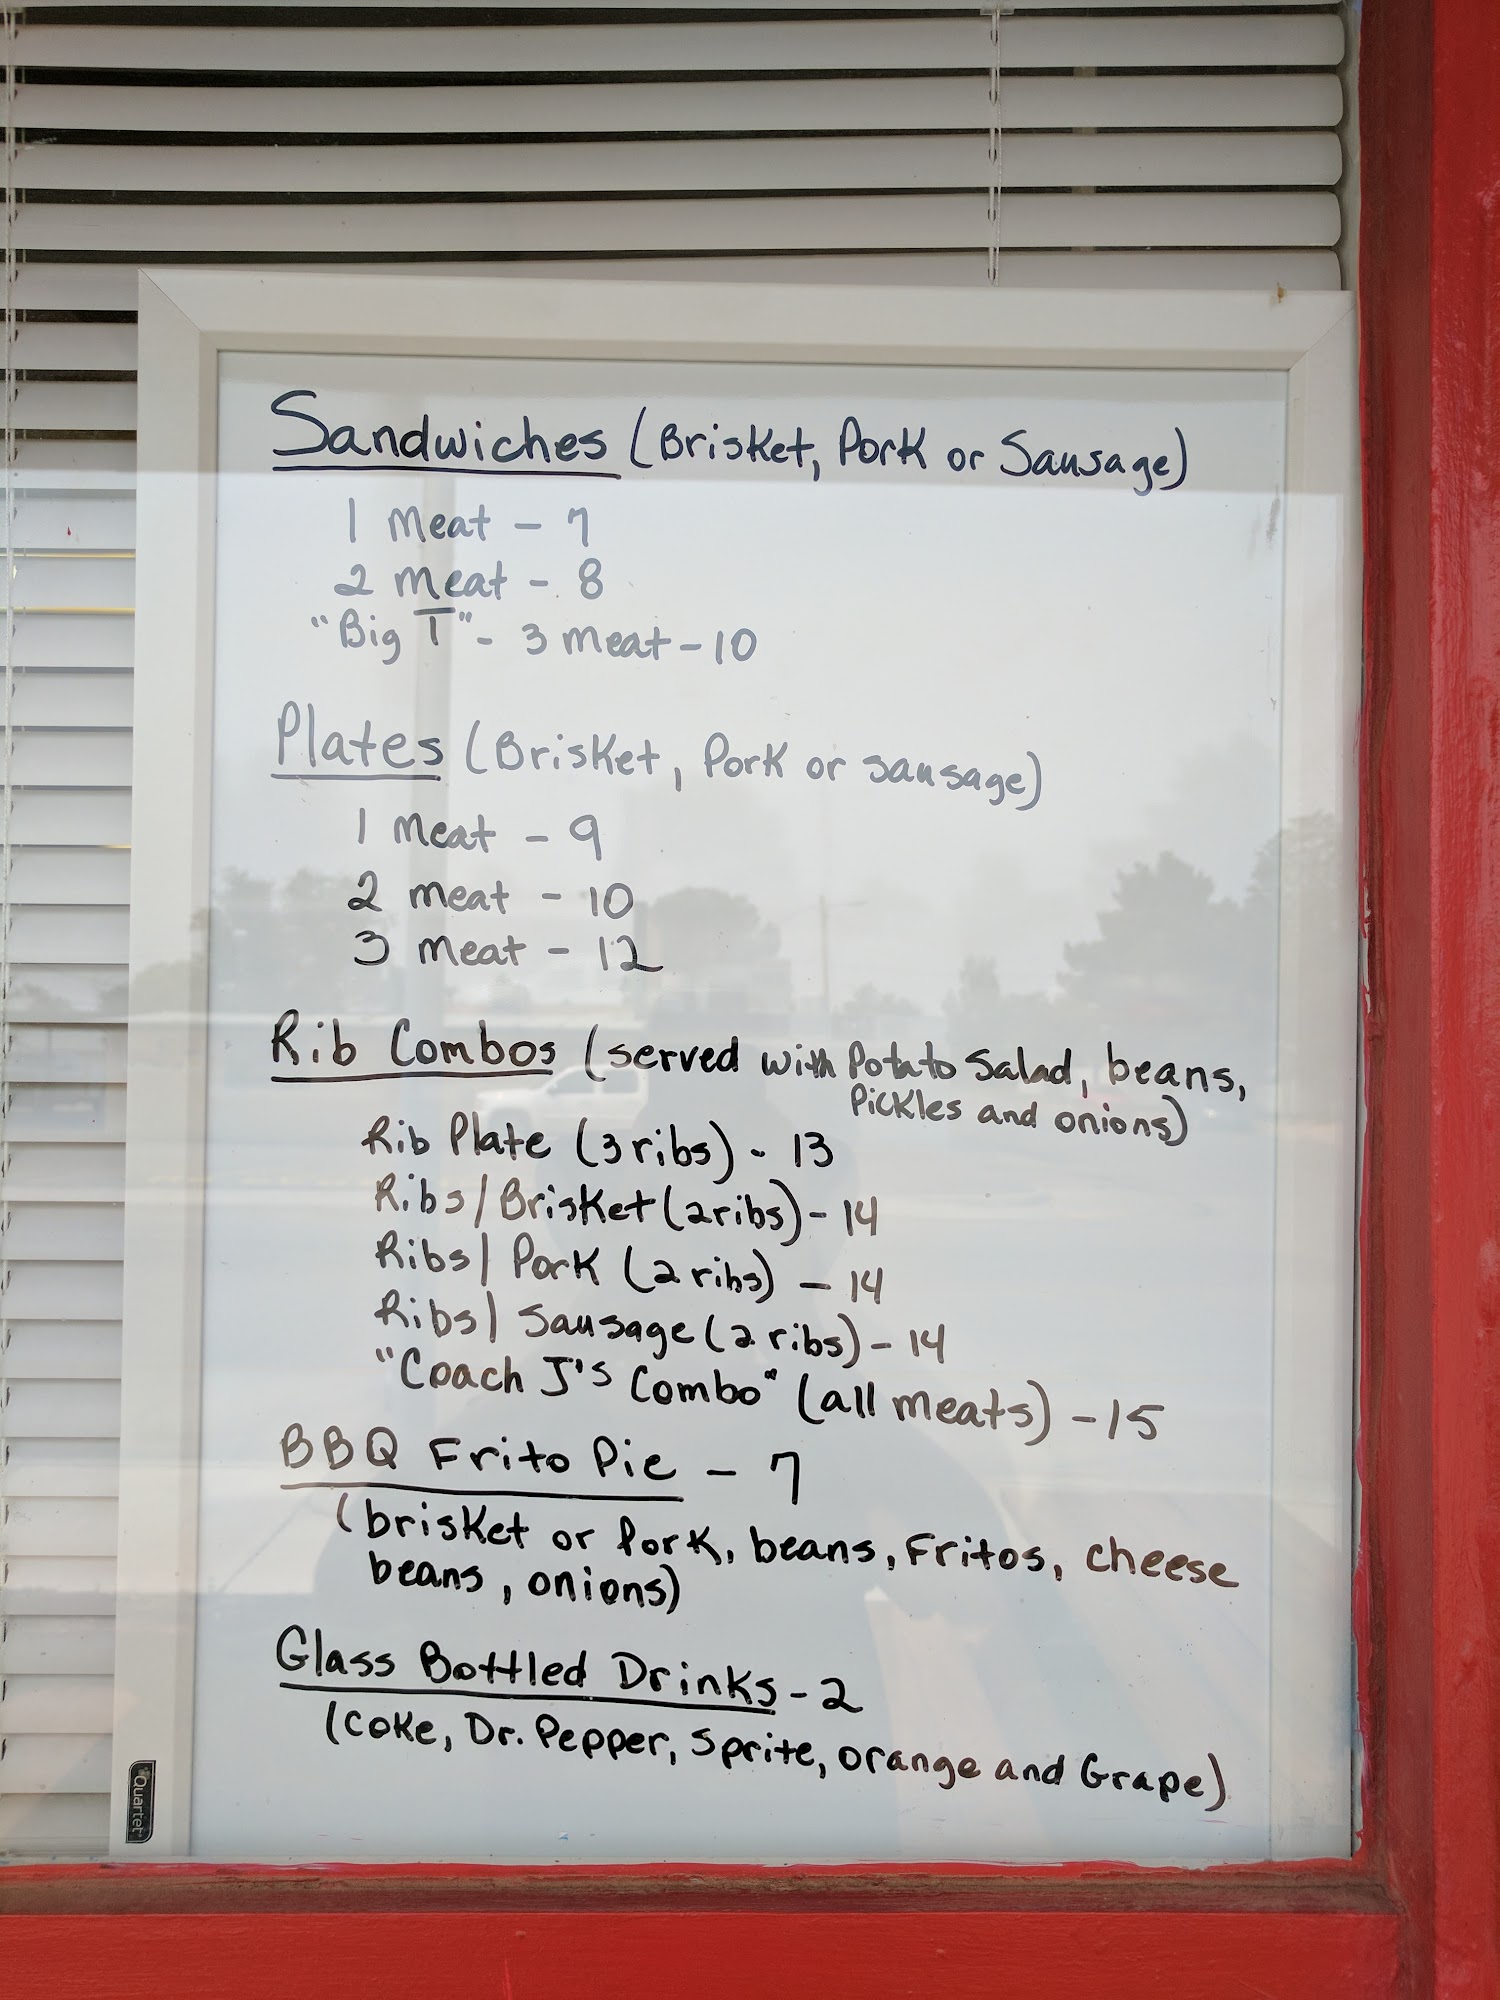 Sandwiches (Brisket, Pork or Sausage)
1 Meat - 7
2 meat - 8
"Big T" - 3 meat - 10
Plates (Brisket, Pork or sausage)
1 Meat - 9
2 meat - 10
3 meat - 12
Rib Combos (served with Potato Salad, beans,
Pickles and onions)
Rib Plate (3 ribs) - 13
Ribs/Brisket (2 ribs) - 14
Ribs/Pork (2 ribs) - 14
Ribs/Sausage (2 ribs) - 14
"Coach J's Combo" (all meats) - 15
BBQ Frito Pie - 7
(brisket or Pork, beans, Fritos, cheese
beans, onions)
Glass Bottled Drinks - 2
(Coke, Dr. Pepper, Sprite, orange and Grape)
Quartet